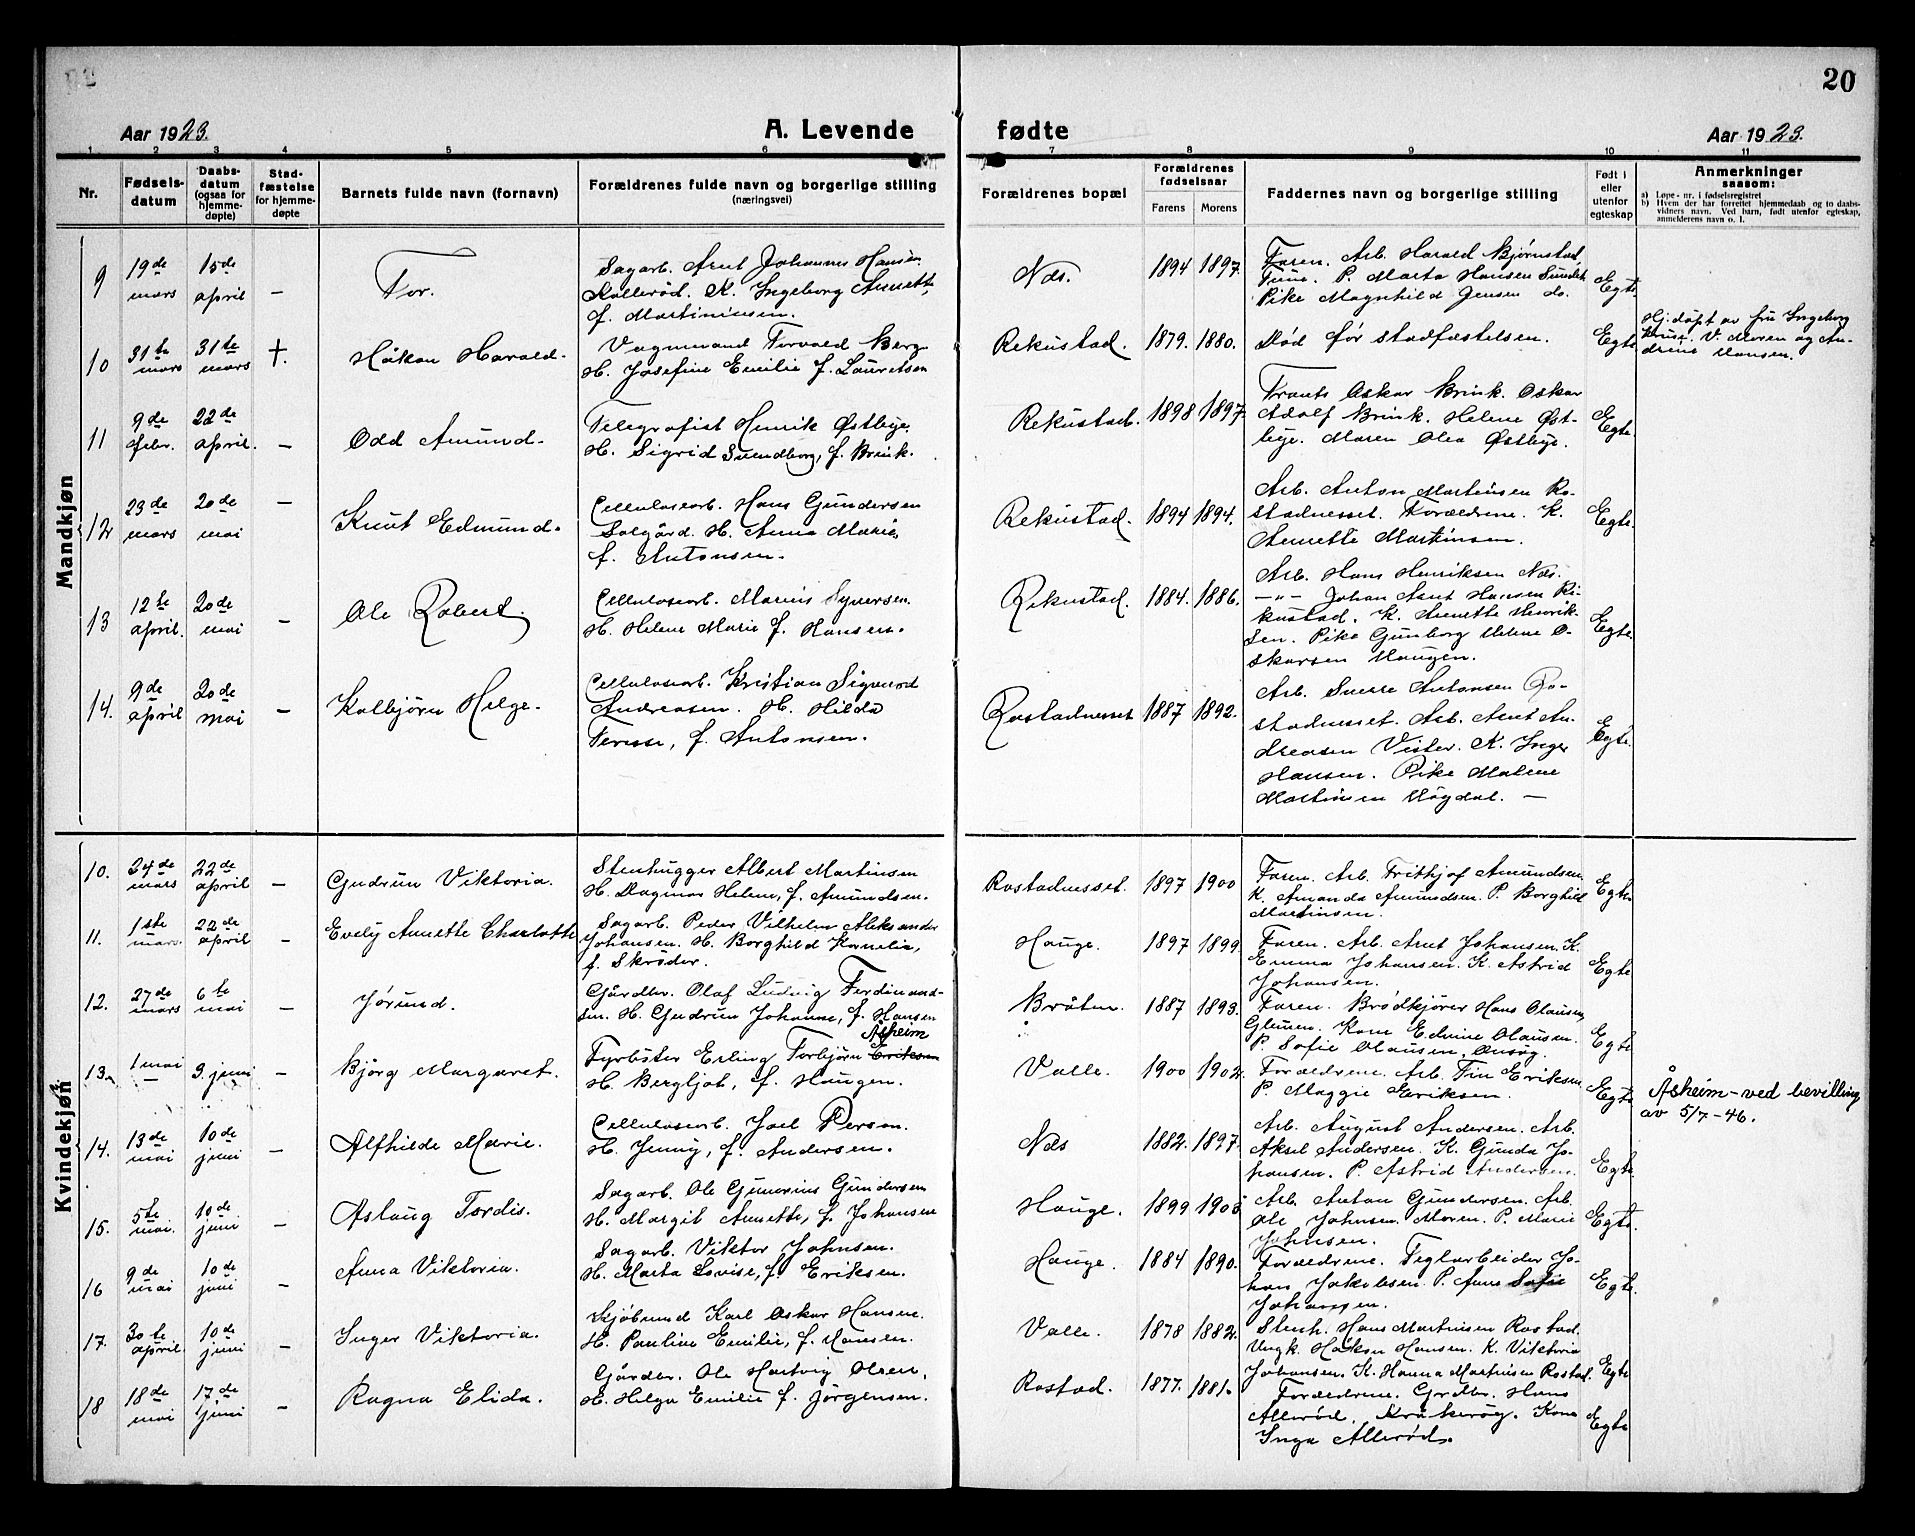 20
Aar 1923.
A. Levende
fødte
Aar 1923.
1 2 3 4 5 6 7 8 9 10 11
Nr.
Fødsels-
datum
Daabs-
datum
(ogsaa for
hjemme-
døpte)
Stad-
fæstelse
for hjemme-
døpte
Barnets fulde navn (fornavn)
Forældrenes fulde navn og borgerlige stilling
(næringsvei)
Forældrenes bopæl
Forældrenes
fødselsaar
Farens. Morens
Faddernes navn og borgerlige stilling
Født i
eller
utenfor
egteskap
Anmerkninger
saasom:
a) Løpe-nr. i fødselsregistret
b) Hvem der har forrettet hjemmedaab og to daabs-
vidners navn. Ved barn, født utenfor egteskap,
anmelderens navn o. l.
Mandkjøn
9
19de
mars
15de
april
-
Tor.
Sagarb. Arnt Johannes Hansen
Kallerød. K. Ingeborg Annette,
f. Martiniusen.
Næs.
1894 1897.
Faren. Arb. Harald Bjørnstad,
Tune. P. Marta Hansen Sundet
Pike Magnhild Jensen do.
Egte
10
31te
mars
31te
mars
†.
Håkon Harald.
Vognmand Torvald Berg
H. Josefine Emilie f. Lauretsen
Rekustad.
1879. 1880.
Død før stadfæstelsen.
Egte
Hj.døpt av fru Ingeborg
Kruse. V. Moren og An-
drine Hansen.
11
9de
febr.
22de
april.
-
Odd Amund.
Telegrafist Henrik Østbye.
H. Sigrid Svendborg, f. Brink.
Rekustad.
1898 1897.
Frants Oskar Brink. Oskar
Adolf Brink. Helene Øst-
bye. Maren Olea Østbye.
Egte.
12
23de
mars
20de
mai
-
Knut Edmund.
Cellulosearb. Hans Gundersen
Solgård. H. Anna Marie,
f. Antonsen.
Rekustad.
1894 1894.
Arb. Anton Martinsen Ro-
stadnesset. Forældrene. K.
Annette Martinsen.
Egte.
13
12te
april.
20de
mai
-
Ole Robert.
Cellulosearb. Marius Syversen.
H. Helene Marie f. Hansen.
Rekustad.
1884. 1886.
Arb. Hans Henriksen Næs.
-"- Johan Arnt Hansen Re-
kustad. K. Annette Henrik-
sen. Pike Gunborg Helene O-
skarsen Haugen.
Egte
14.
9de
april
20de
mai
-
Kolbjørn Helge.
Cellulosearb. Kristian Sigvard
Andreasen. H. Hilda
Terese, f. Antonsen.
Rostadnesset
1887 1892.
Arb. Sverre Antonsen Ro-
stadnesset. Arb. Arnt An-
dreasen Vister. K. Inger
Hansen. Pike Malene
Martinsen Høgdal. -
Egte.
Kvindekjøn
10.
24de
mars
22de
april
-
Gudrun Viktoria.
Stenhugger Albert Martinsen
H. Dagmar Helene, f. Amundsen.
Rostadnesset.
1897 1900
Faren. Arb. Frithjof Amundsen.
K. Amanda Amundsen. P. Borghild
Martinsen.
Egte
11.
1ste
mars
22de
april
-
Evely Annette Charlotte
Sagarb. Peder Vilhelm Aleksander
Johansen. H. Borghild Kornelia,
f. Skrøder.
Hauge.
1897 1899.
Faren. Arb. Arnt Johansen. K.
Emma Johansen. K. Astrid
Johansen.
Egte
12.
27de
mars
6te
mai
-
Jørund.
Gårdbr. Olaf Ludvig Ferdinand-
sen. H. Gudrun Johanne, f. Hansen
Bråten.
1887 1893.
Faren. Brødkjører Hans Olausen,
Glemen. Kone Edvine Olausen.
P. Sofie Olausen, Onsøy.
Egte
13.
1 mai
-
3. juni
-
Bjørg Margaret.
Åsheim
Fyrbøter Erling Torbjørn Eriksen
H. Bergljot, f. Haugen.
Valle.
1900 1902.
Forældrene. Arb. Tin Eriksen
P. Maggie Eriksen.
Egte
Åsheim - ved bevilling
av 5/7-46.
14.
13de
mai
10de
juni
-
Alfhilde Marie.
Cellulosearb. Joel Person.
H. Jenny, f. Andersen.
Næs
1882. 1897.
Arb. August Andersen. Arb.
Aksel Andersen. K. Gunda Jo-
hansen. P. Astrid Andersen.
Egte
15.
5te
mai.
10de
juni
-
Aslaug Tordis.
Sagarb. Ole Gunerius Gundersen
H. Margit Annette, f. Johansen
Hauge.
1899 1903
Arb. Anton Gundersen. Arb.
Ole Johnsen. Moren. P. Marie
Johnsen.
Egte.
16
9de
mai
10de
juni
-
Anna Viktoria.
Sagarb. Viktor Johnsen.
H. Marta Lovise, f. Eriksen.
Hauge.
1884 1890.
Forældrene. Teglarbeider Jo-
han Jakobsen. P. Anne Sofie
Johansen.
Egte.
17.
30te
april.
10de
juni
-
Inger Viktoria.
Kjøbmand Karl Oskar Hansen.
H. Pauline Emilie, f. Hansen.
Valle.
1878 1882.
Stenh. Hans Martinsen Rostad.
Ungk. Håkon Hansen. K. Viktoria
Johansen. K. Hanna Martinsen Rostad.
Egte
18
18de
mai
17de
juni
-
Ragna Elida.
Gårdbr. Ole Hartvig Olsen,
H. Helga Emilie f. Jørgensen.
Rostad.
1877. 1881.
Forældrene. Grdbr. Hans
Allerød, Kråkerøy. Kone
Inga Allerød.
Egte